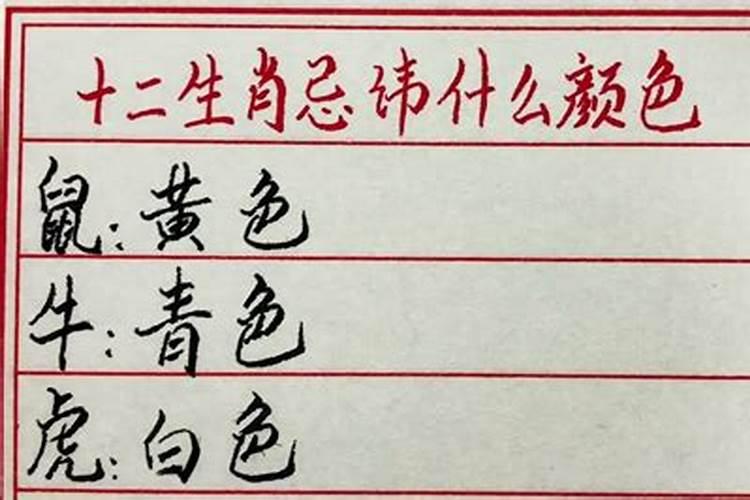 十二生肖忌讳什么颜色
鼠:黄色
牛:青色
虎:白色